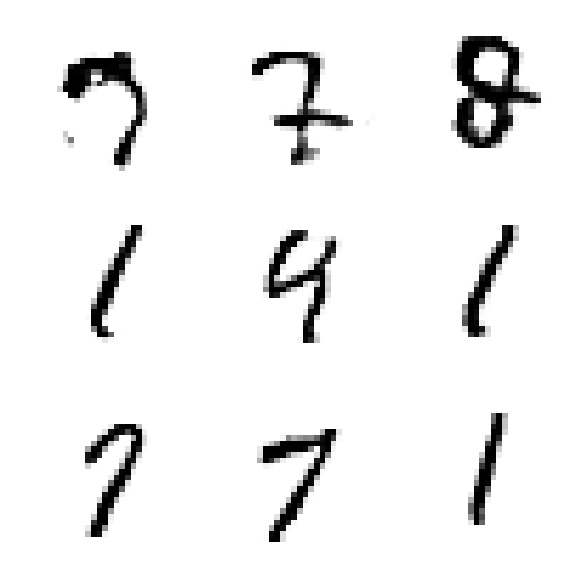 7 7 8
1 9 1
7 7 1